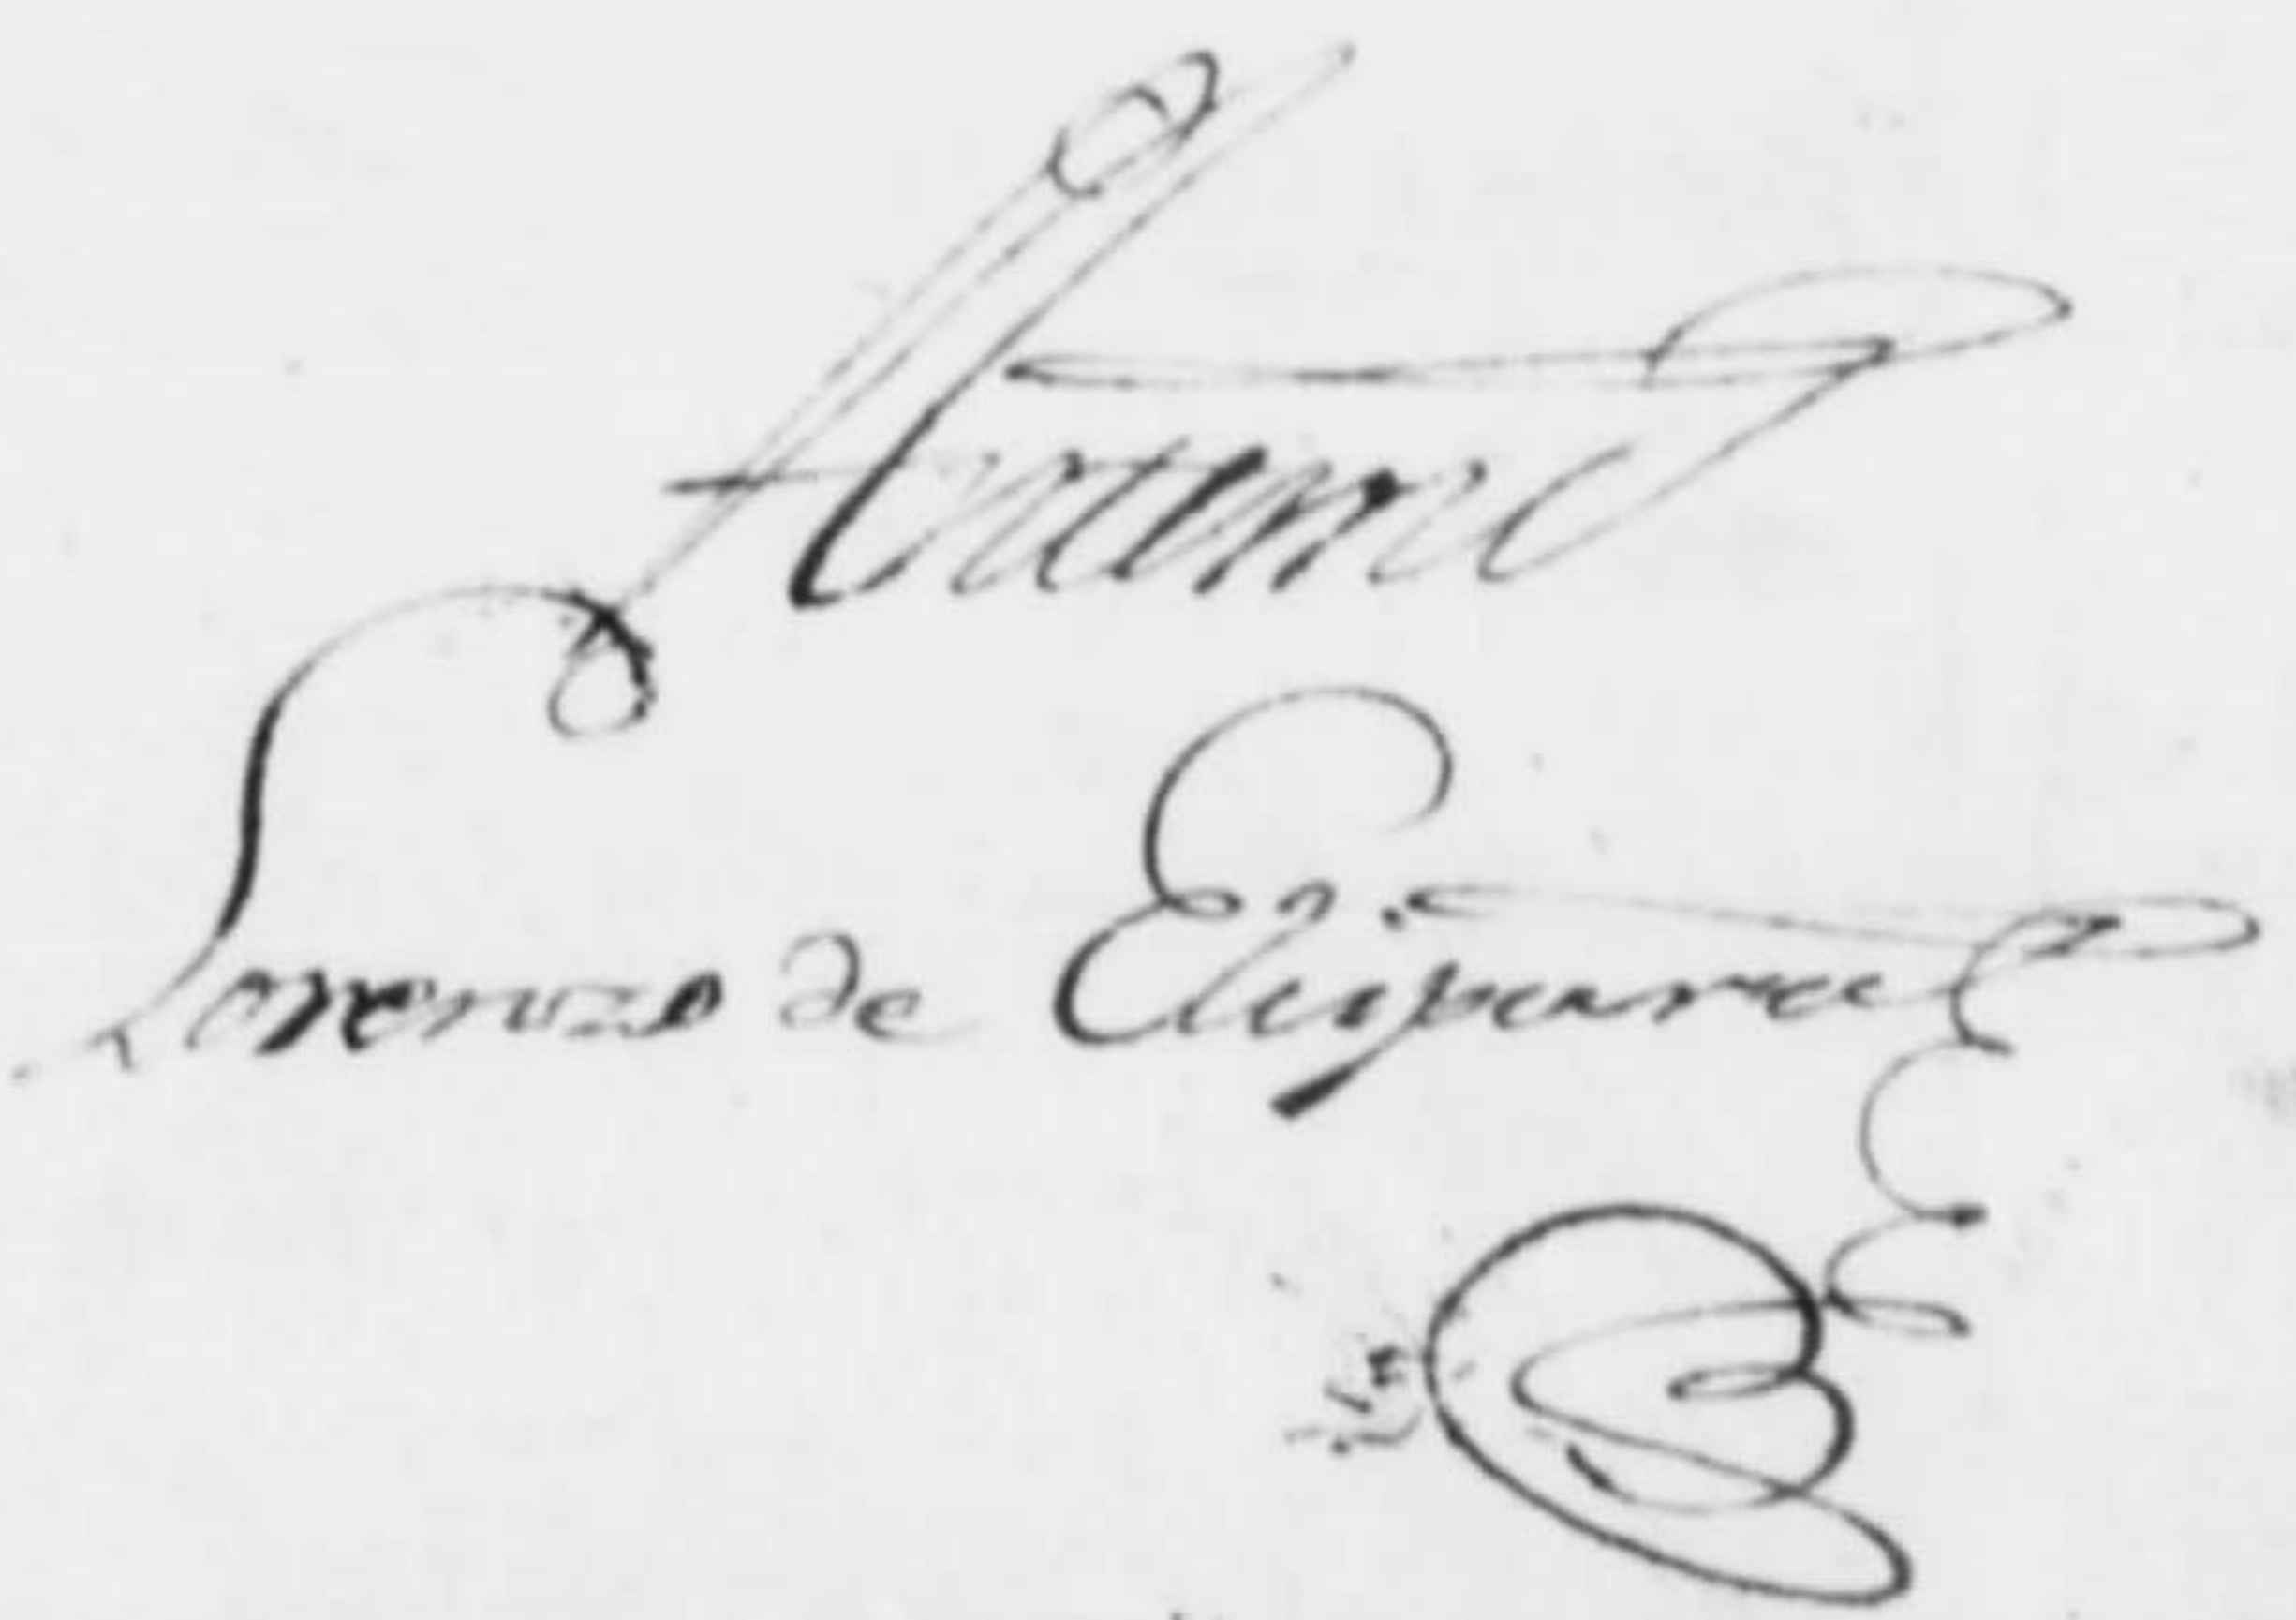 Ante mi
Lorenzo de Elizparza